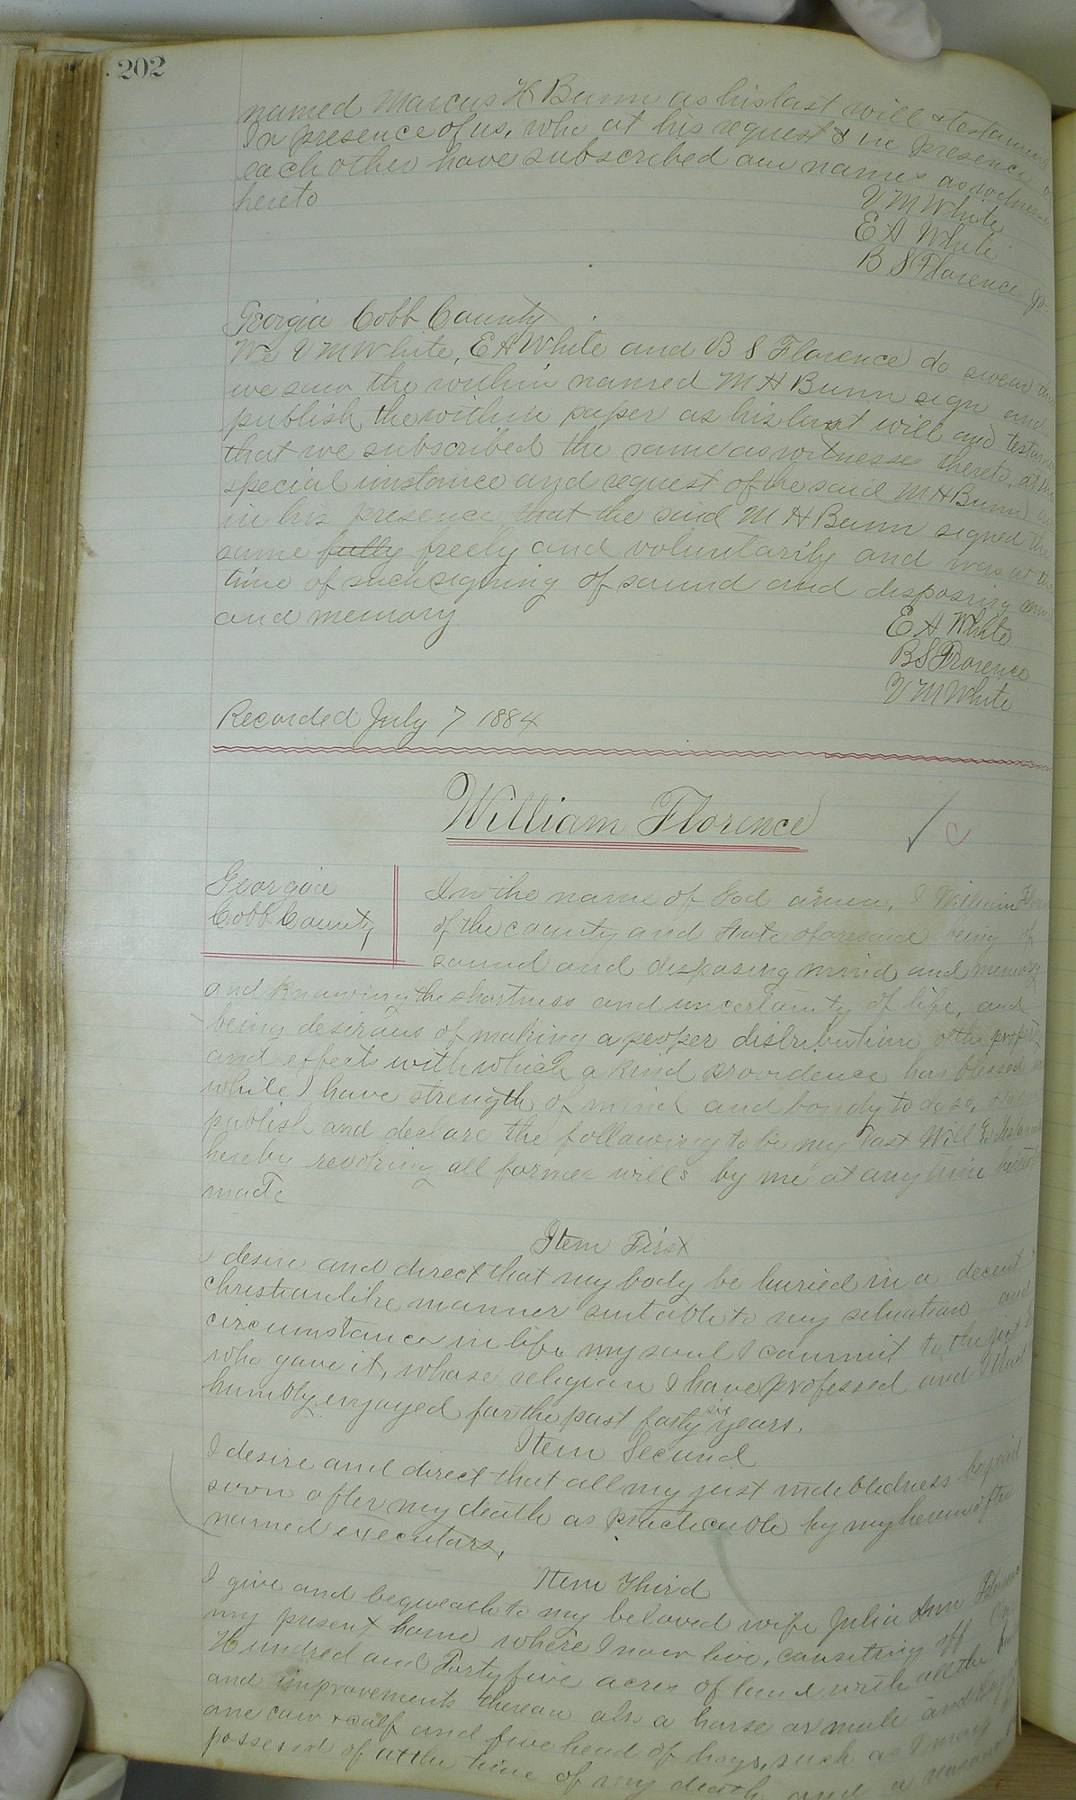 202
named Marcus H Bunn as his last will & testament
In presence of us, who at his request & in presence of
each other have subscribed our names as witnesses
hereto
V M White
E A White
B S Florence
Georgia Cobb County
We V M White, E A White and B S Florence do swear that
we saw the within named M H Bunn sign and
publish the within paper as his last will and testament
that we subscribed the same as witnesses thereto, at the
special instance and request of the said M H Bunn and
in his presence that the said M H Bunn signed the
same fully freely and voluntarily and was at the
time of such signing of sound and disposing mind
and memory
E A White
B S Florence
V M White
Recorded July 7 1884
William Florence
C
Georgia
Cobb County
In the name of God amen, I William
of the county and State aforesaid being of
sound and disposing mind and memory
and knowing the shortness and uncertainty of life, and
being desirous of making a proper distribution of the property
and effects with which a kind providence has blessed
while I have strength of mind and boady to do so,
publish and declare the following to be my last Will & Testament
hereby revoking all former wills by me at any time
made
Item First
I desire and direct that my body be buried in a decent
christianlike manner suitable to my situation and
circumstance in life my soul I commit to the
who gave it, whose religion I have professed and
humbly enjoyed for the past forty six years.
Item Second
I desire and direct that all my just indebtedness be paid
soon after my death as practicable by my hereinafter
named executors,
Item Third
I give and bequeath to my beloved wife Julia Ann Florence
my present home where I now live, consisting off One
Hundred and Forty five acres of land with all the
and improvements thereon also a horse or mule and
one cow & calf and five head of hogs, such as I may
possessed of at the time of my death and a